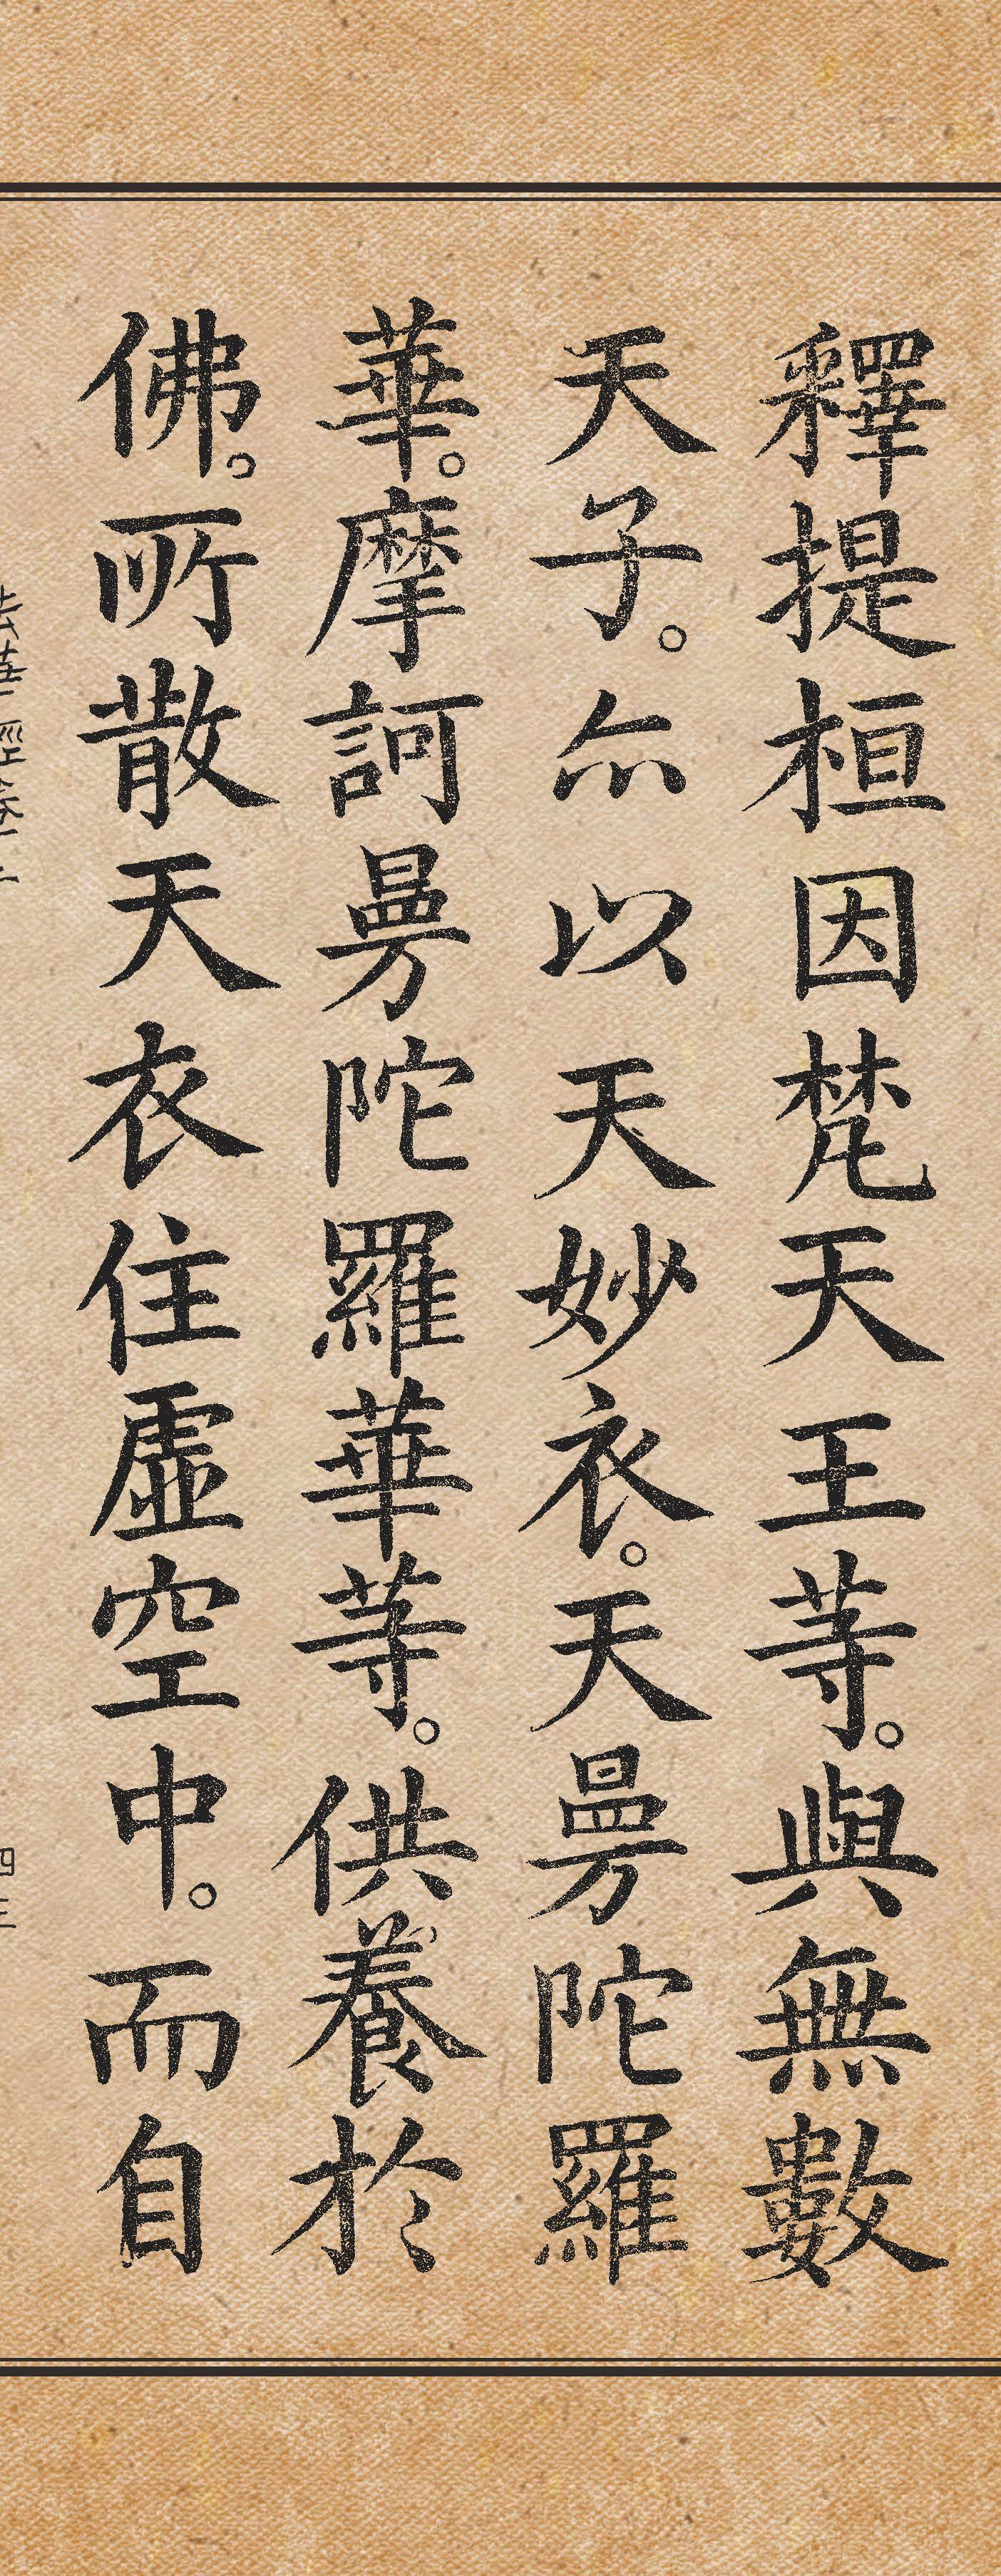 釋提桓因梵天王等。與無數
天子。尒以天妙衣。天曼陀羅
華。摩訶曼陀羅華等。供養於
佛。所散天衣住虛空中。而自